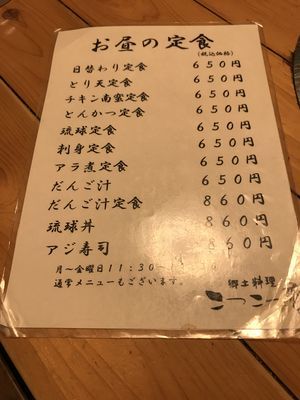 お昼の定食
(税込価格)
日替わり定食 650円
とり天定食 650円
チキン南蛮定食 650円
とんかつ定食 650円
琉球定食 650円
刺身定食 650円
アラ煮定食 650円
だんご汁 650円
だんご汁定食 860円
琉球丼 860円
アジ寿司 860円
月～金曜日11:30~
通常メニューもございます。
郷土料理
こつこつ